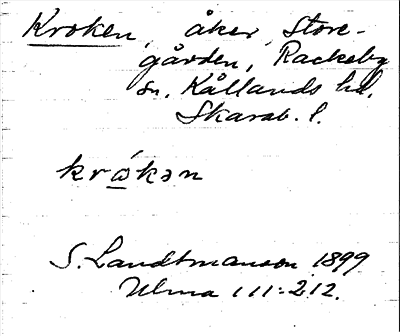 Kroken, åker, Store-
gården, Rackeby
sn. Kållands hd.
Skarab. l.
krɷ́kən
S. Landtmanson 1899
Ulma 111:212.